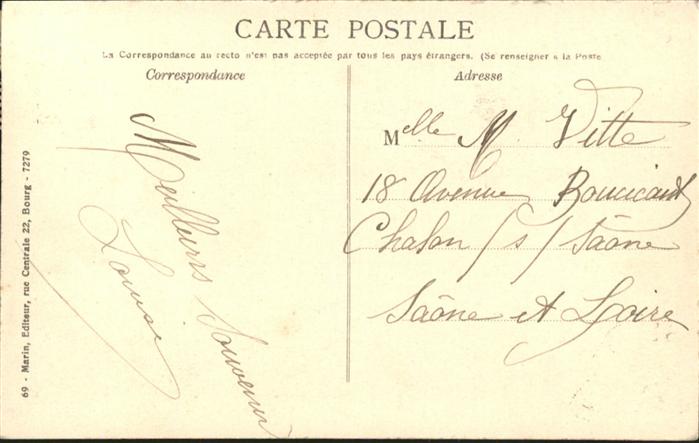 CARTE POSTALE
La Correspondance au recto n'est pas acceptée par tous les pays étrangers. (Se renseigner à la Poste
Correspondance
Meilleurs Souvenir
Louise
Adresse
Melle M. Vitte
18 Avenue Boucicaut
Chalon /s/ Saône
Saône et Loire
69 - Marin, Editeur, rue Centrale 22, Bourg - 7279